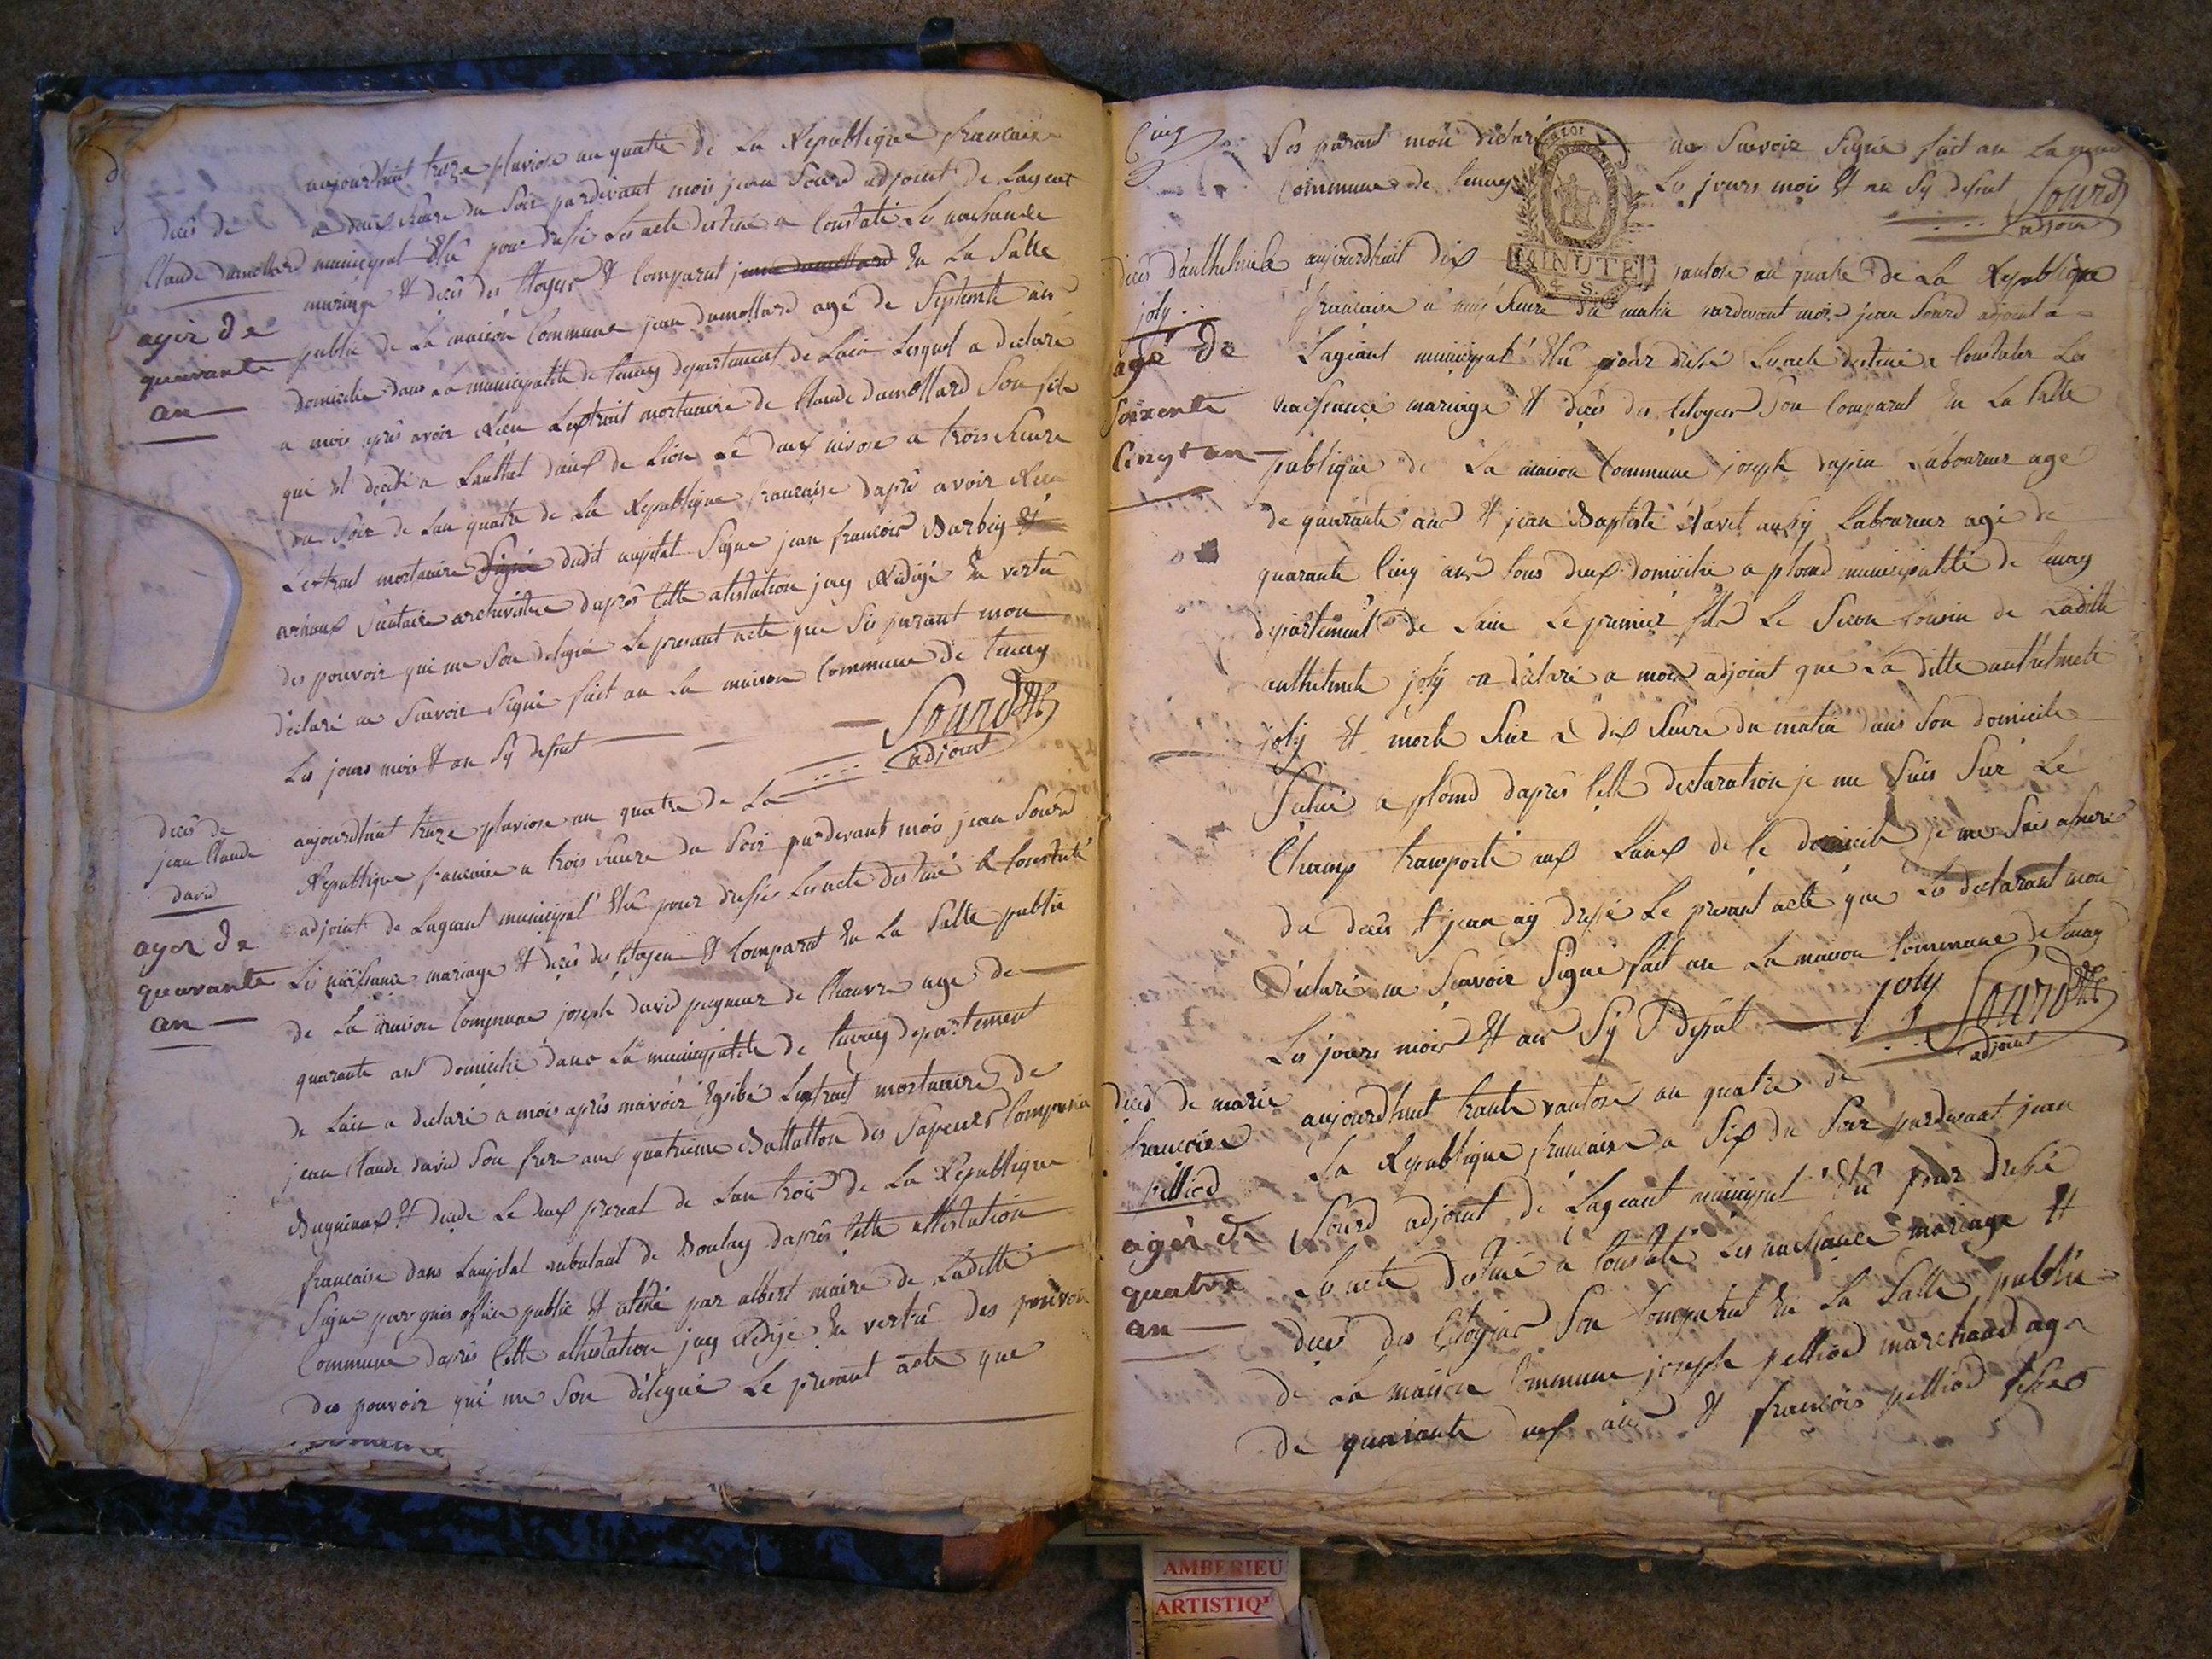 decès de
Claude dumollard
agér de
quarante
an
aujourdhuit traize pluviose an quatre de La Republique francaise
a deux heure du Soir pardevant mois jean Sourd adjoint de Lageant
municipal Elû pour dressé Les acte destiné a Constaté Les naissance
mariage et decès des Citoyens et Comparut jean dumollard En La Salle
public de La maison Commune jean dumollard agé de Septente ans
domicilie dans La municipalité de tenay departement de Lain Lesquel a declaré
a mois après avoir Recu Lextrait mortuaire de Claude dumollard Son fils
qui est décédé a L'authel dieux de Lion Le deux nivose a trois heure
du Soir de Lan quatre de La Republique francaise daprès avoir Recu
Lextrait mortuaire Signé dudit aupital Signe jean francois Barbey et
arnaux archiviste daprès Cette atestation jay Redigé En vertu
des pouvoir qui me Son delegué Le presant acte que Ses parant mon
déclaré ne Scavoir Signé fait an La maison Commune de tenay
Les jours mois et an Sy desut
Sourd
adjoint
decès de
jean Claude
david
ager de
quarante
an
aujourdhuit traize pluviose an quatre de La
Republique francaise a trois heure du Soir pardevant mois jean Sourd
adjoint de Lageant municipal Elû pour dressé Les acte destiné a Constaté
Les naissance mariage et decès des Citoyen et Comparut En La Salle public
de La maison Commune joseph david peigneur de Chanvre age de
quarante ans domicilié dans La municipalité de tenay departement
de Lain a declaré a mois après mavoir Exsibé Lextrait mortuaire de
jean Claude david Son frere aux quatrieme Battallon des Sapeurs Compagnie
Bugniaux et décédé Le deux prereal de Lan trois de La Republique
francaise dans Laupital anbulant de Boulay daprès Cette attestation
Signe par officié public et atesté par albert maire de Ladille
Commune daprès Cette attestation jay Redigé En vertu des pouvoir
des pouvoir qui me Son delegué Le presant acte que
Cinq
Ses parant mon déclaré ne Scavoir Signé fait an La
Commune de tenay Les jours mois et an Sy desut
Sourd
adjoint
LA LOI
MINUTE
4 S.
decès danthelmete
joly
agé de
Soixente
Cinq an
aujourdhuit dix vantose an quatre de La Republique
francaise a heure du matin pardevant mois jean Sourd adjoint a
Lageant municipal Elû pour dressé Les acte destiné a Constater Les
naissance mariage et decès des Citoyens Son Comparut En La Salle
publique de La maison Commune joseph dupin Laboureur agé
de quarante ans et jean Baptiste aussy Laboureur agé de
quarante Cinq ans tous deux domicilié a plomd municipalité de tenay
departement de Lain Le premier fils Le Secon Cousin de Laditte
anthelmete joly on déclaré a mois adjoint que La ditte anthelmete
joly et morte hier a dix heure du matin dans Son domicile
Situé a plomd daprès Cette declaration je me Suis Sur Le
Champ transporté aux Lieux de Ce domicile je me Suis assuré
du decès et jean ay dressé Le presant acte que Les declarant mon
Déclaré ne Scavoir Signé fait an La maison Commune de tenay
Les jours mois et an Sy desut
joly
Sourd
adjoint
decès de marie
francoise
pelliod
ager de
quatre
an
aujourdhuit trante vantose an quatre de
La Republique francaise a Six du Soir pardevant jean
Sourd adjoint de Lageant municipal Elû pour dressé
Les acte destiné a Constaté Les naissance mariage et
decès des Citoyens Son Comparut En La Salle public
de La maison Commune joseph pelliod marchand age
de quarante ans et francois pelliod
AMBERIEU
ARTISTIQ